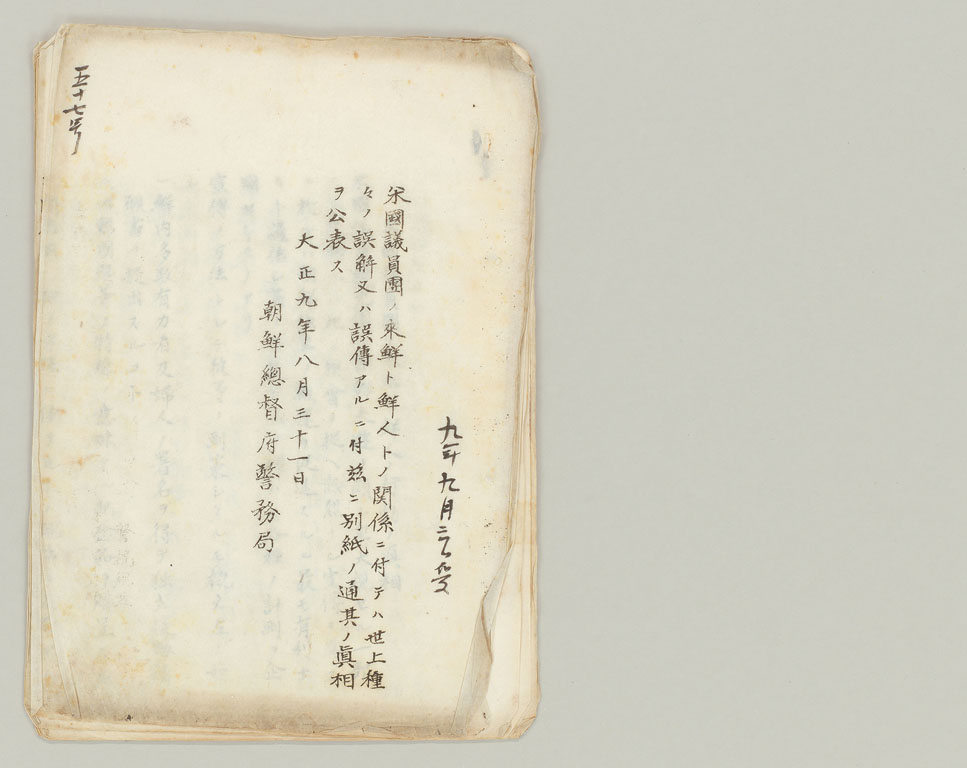 九年九月二七日受
米國議員團ノ來鮮ト鮮人トノ関係ニ付テハ世上種
々ノ誤解又ハ誤傳アルニ付玆ニ別紙ノ通其ノ眞相
ヲ公表ス
大正九年八月三十一日
朝鮮總督府警務局
五十七号